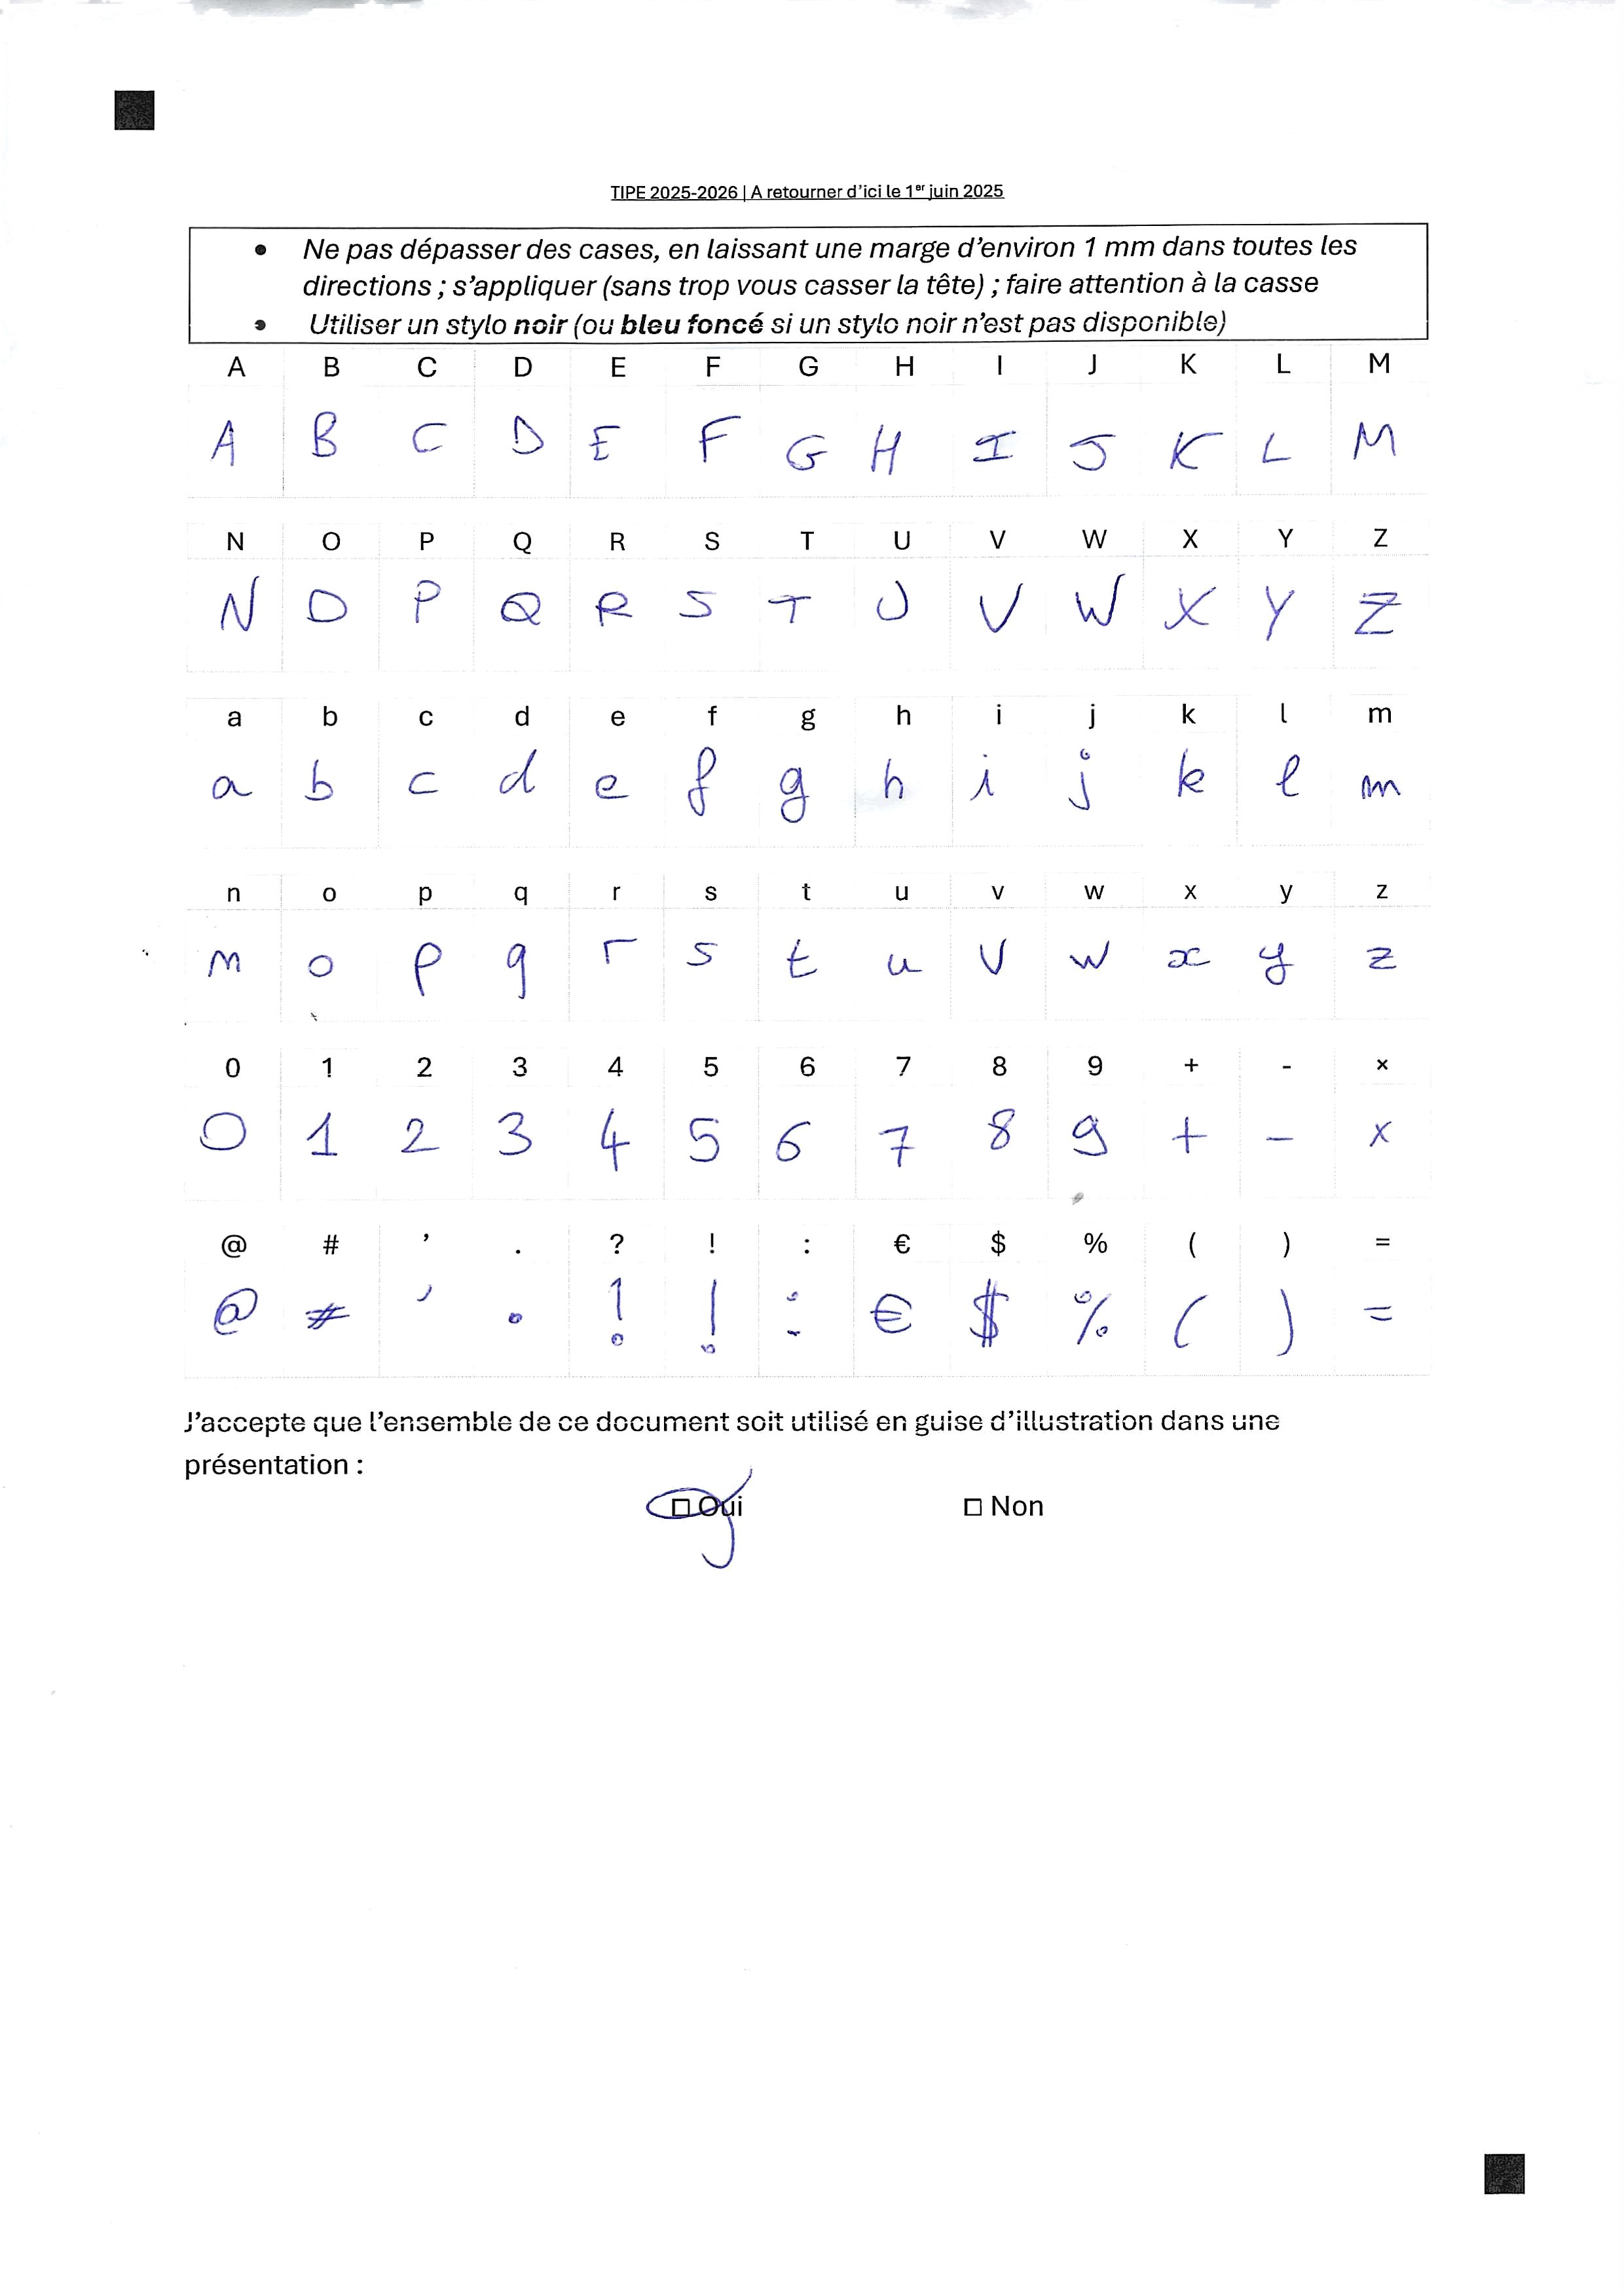 TIPE 2025-2026 | A retourner d'ici le 1er juin 2025
• Ne pas dépasser des cases, en laissant une marge d'environ 1 mm dans toutes les
directions ; s'appliquer (sans trop vous casser la tête) ; faire attention à la casse
• Utiliser un stylo noir (ou bleu foncé si un stylo noir n'est pas disponible)
A B C D E F G H I J K L M
A B C D E F G H I J K L M
N O P Q R S T U V W X Y Z
N O P Q R S T U V W X Y Z
a b c d e f g h i j k l m
a b c d e f g h i j k l m
n o p q r s t u v w x y z
n o p q r s t u v w x y z
0 1 2 3 4 5 6 7 8 9 + - ×
0 1 2 3 4 5 6 7 8 9 + - ×
@ # ’ . ? ! : € $ % ( ) =
@ # ’ . ? ! : € $ % ( ) =
J'accepte que l'ensemble de ce document soit utilisé en guise d'illustration dans une
présentation :
☐ Oui ☐ Non